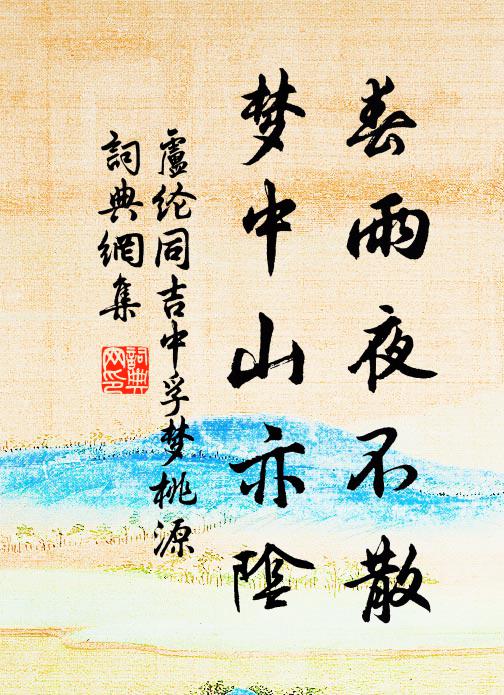 春雨夜不散
梦中山亦陰
盧纶同吉中孚梦桃源
詞典網集
詞典网印